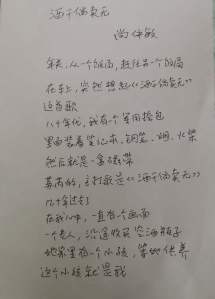 酒干倘卖无
尚仲敏
冬天,从一个饭局,赶往另一个饭局
在车上,突然想起《酒干倘卖无》
这首歌
八十年代,我有个军用挎包
里面装着笔记本、钢笔、烟、火柴
然后就是一盒磁带
苏芮的,主打歌是《酒干倘卖无》
几十年过去了
在我心中,一直有个画面
一个老人,沿途收买空酒瓶子
他家里有个小孩,等他供养
这个小孩就是我